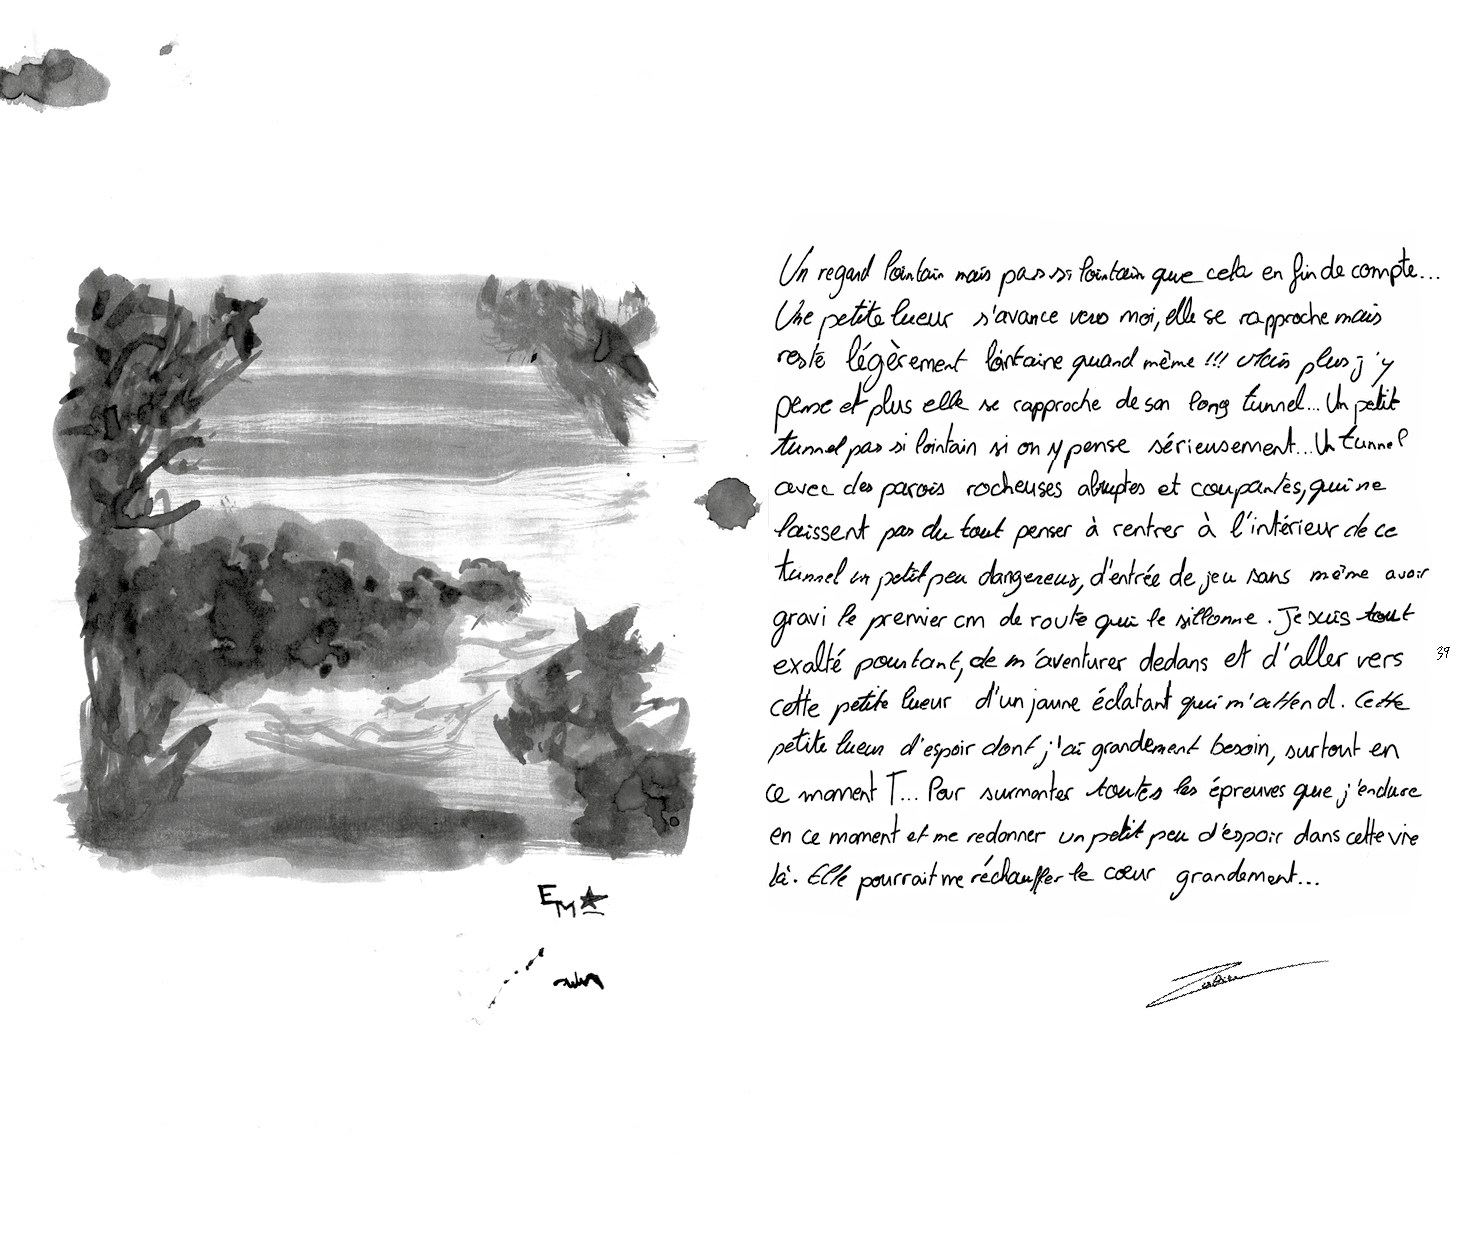 Un regard lointain mais pas si lointain que cela en fin de compte...
Une petite lueur s'avance vers moi, elle se rapproche mais
reste légèrement lointaine quand même !!! Mais plus j'y
pense et plus elle se rapproche de son long tunnel... Un petit
tunnel pas si lointain si on y pense sérieusement... Un tunnel
avec des parois rocheuses abruptes et coupantes, qui ne
laissent pas du tout penser à rentrer à l'intérieur de ce
tunnel un petit peu dangereux, d'entrée de jeu sans même avoir
gravi le premier cm de route qui le sillonne. Je suis tout
exalté pourtant, de m'aventurer dedans et d'aller vers
cette petite lueur d'un jaune éclatant qui m'attend. Cette
petite lueur d'espoir dont j'ai grandement besoin, surtout en
ce moment T... Pour surmonter toutes les épreuves que j'endure
en ce moment et me redonner un petit peu d'espoir dans cette vie
là. Elle pourrait me réchauffer le cœur grandement...
39
EM